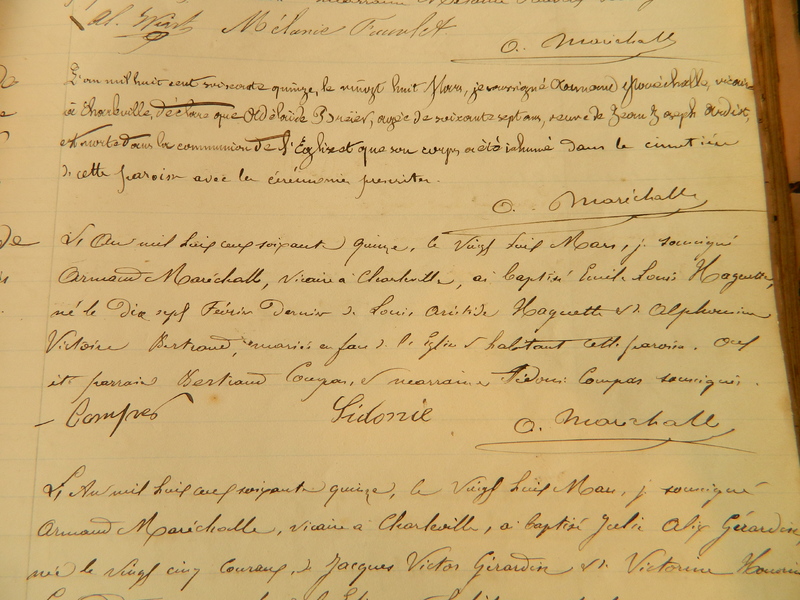 Mélanie
A. Maréchall
L'an mil huit cent soixante quinze, le vingt huit Mars, je soussigné Armand Maréchalle, vicaire
à Charleville, déclare que Adélaïde agée de soixante sept ans, veuve de Jean Joseph
est morte dans la communion de l'Eglise et que son corps a été inhumé dans le cimetière
de cette paroisse avec les cérémonies
A. Maréchall
L'An mil huit cent soixante quinze, le vingt huit Mars, je soussigné
Armand Maréchall, vicaire à Charleville, ai baptisé Emile Louis Haguette,
né le Dix sept Février Dernier de Louis Aristide Haguette et de Alphonsine
Victoire Bertrand, mariés en face de l'Eglise & habitant cette paroisse. Ont
été parrain Bertrand Compas, & marraine Sidonie Compas soussignés.
Compas Sidonie A. Maréchall
L'An mil huit cent soixante quinze, le vingt huit Mars, je soussigné
Armand Maréchalle, vicaire à Charleville, ai baptisé Julie Alix Gérardin,
née le vingt cinq courant, de Jacques Victor Gérardin & de Victorine